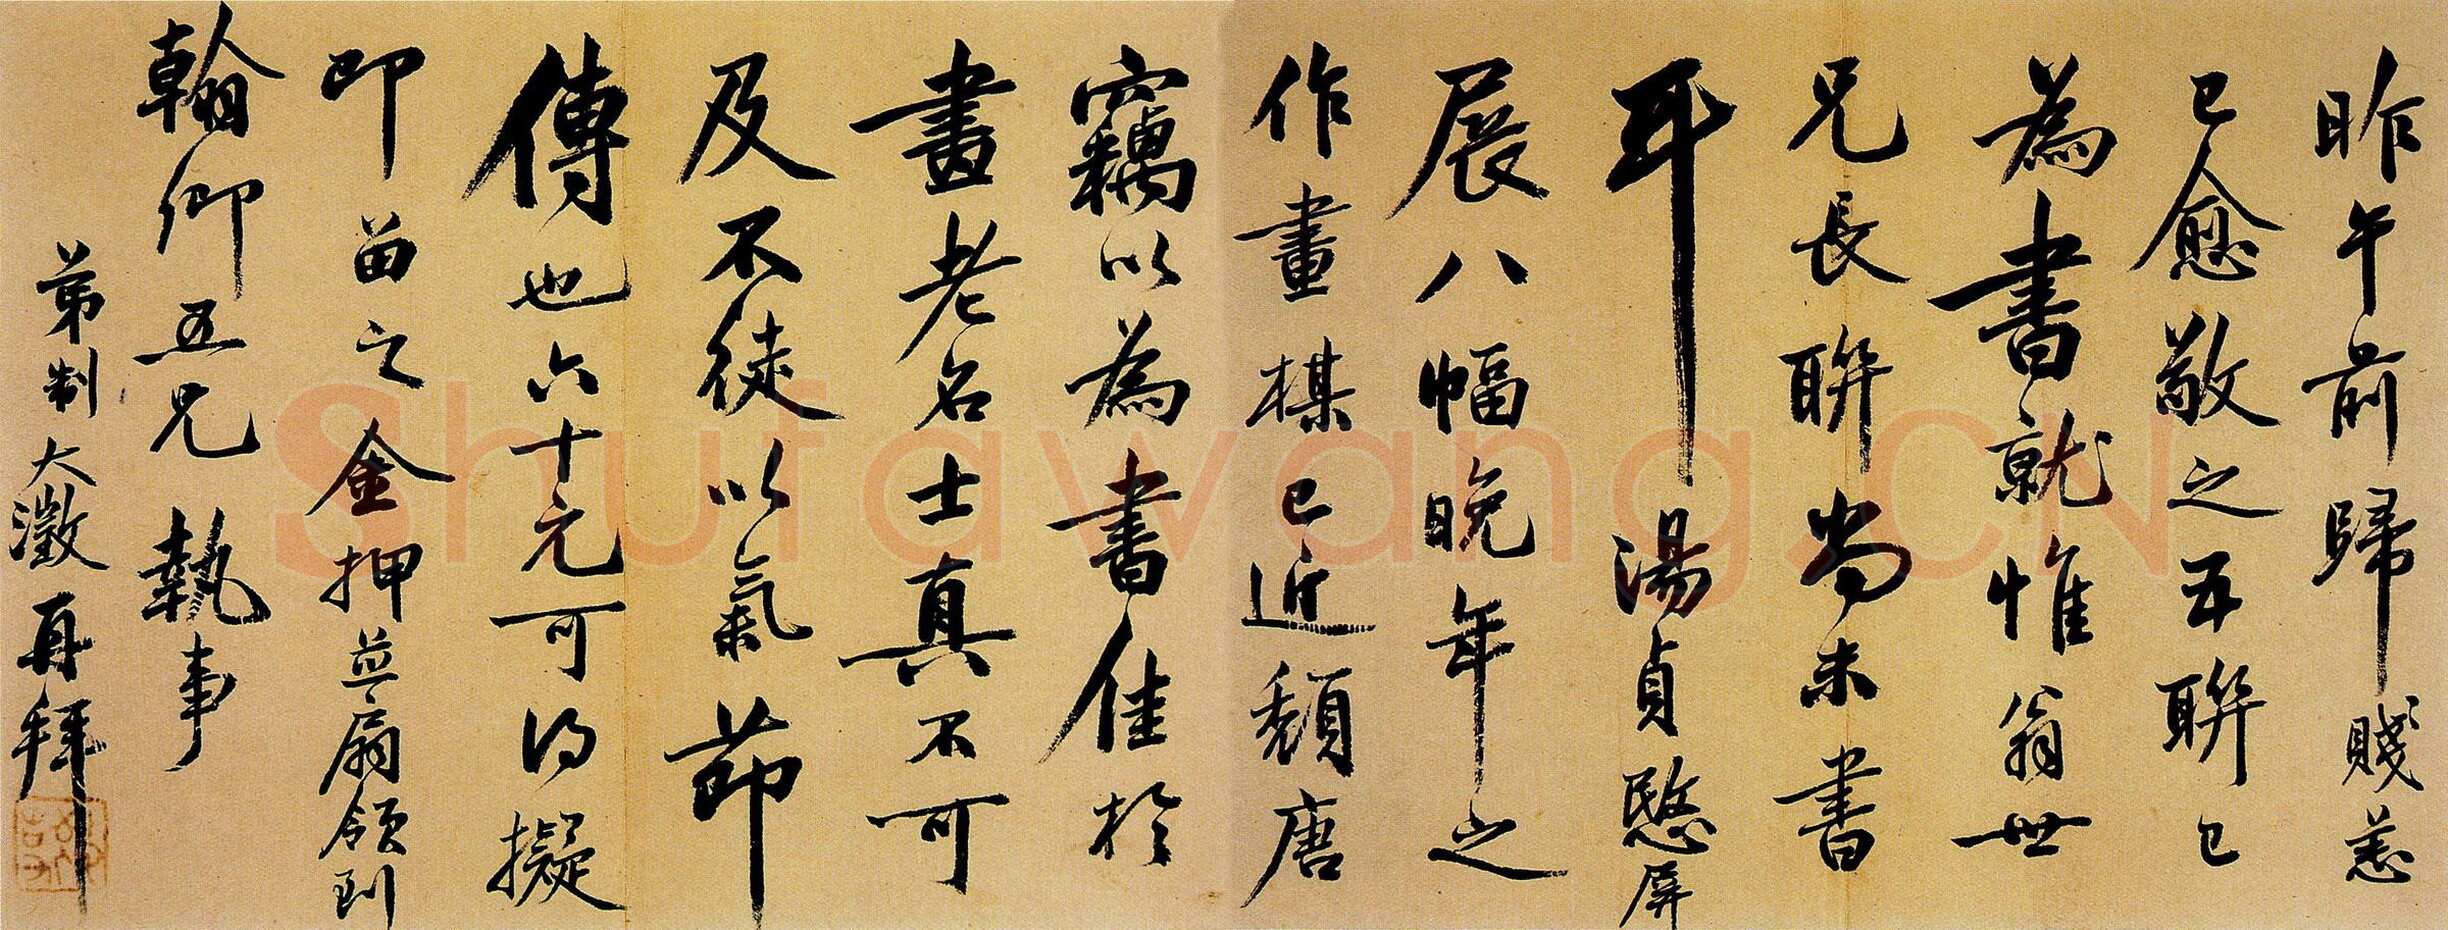 昨午前歸賤恙
已愈敬之五聯已
為書就惟翁世
兄長聯尚未書
耳湯貞愍屏
展八幅晚年之
作畫楳已近頹唐
竊以為書佳於
畫老名士真不可
及不徒以氣節
傳也六十元可得擬
即留之金押並扇領到
翰卿五兄執事
弟制大澂再拜
Shufawang.CN